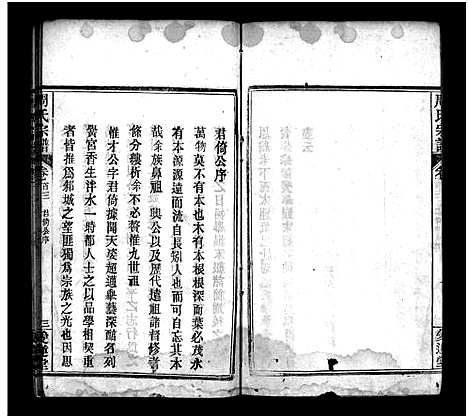 君倚公序
萬物莫不有本也木有本根根深而葉必茂水
有本源源遠而流自長矧人也而可自忘其本
哉除族鼻祖 與公以及歷代遠祖諸督修者
條分縷析余不必贅惟九世祖
惟才公字君倚據開天葵超邁舉藝深醇名
黌宮香生泮水一時都人士之以品學相契重
者皆推為郁城之望匪獨為宗族之光也因思
周氏宗譜
卷首三
君倚公序
三
愛蓮堂
周氏宗譜
卷
愛蓮堂